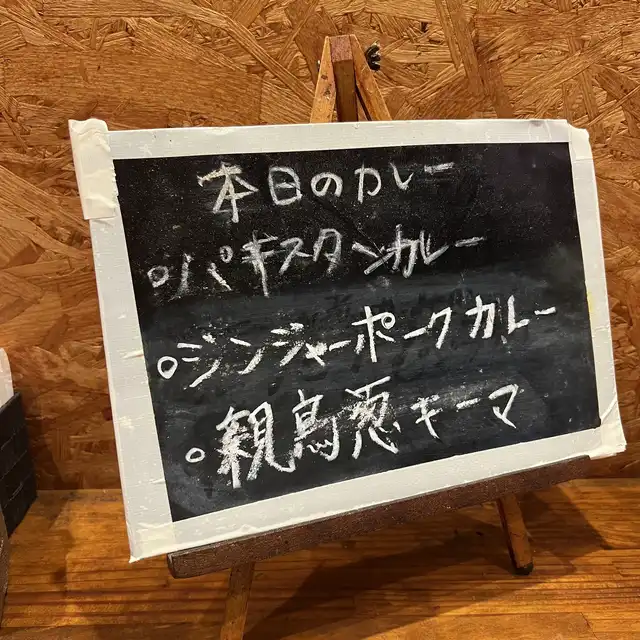 本日のカレー
○パキスタンカレー
○ジンジャーポークカレー
○親鳥葱キーマ